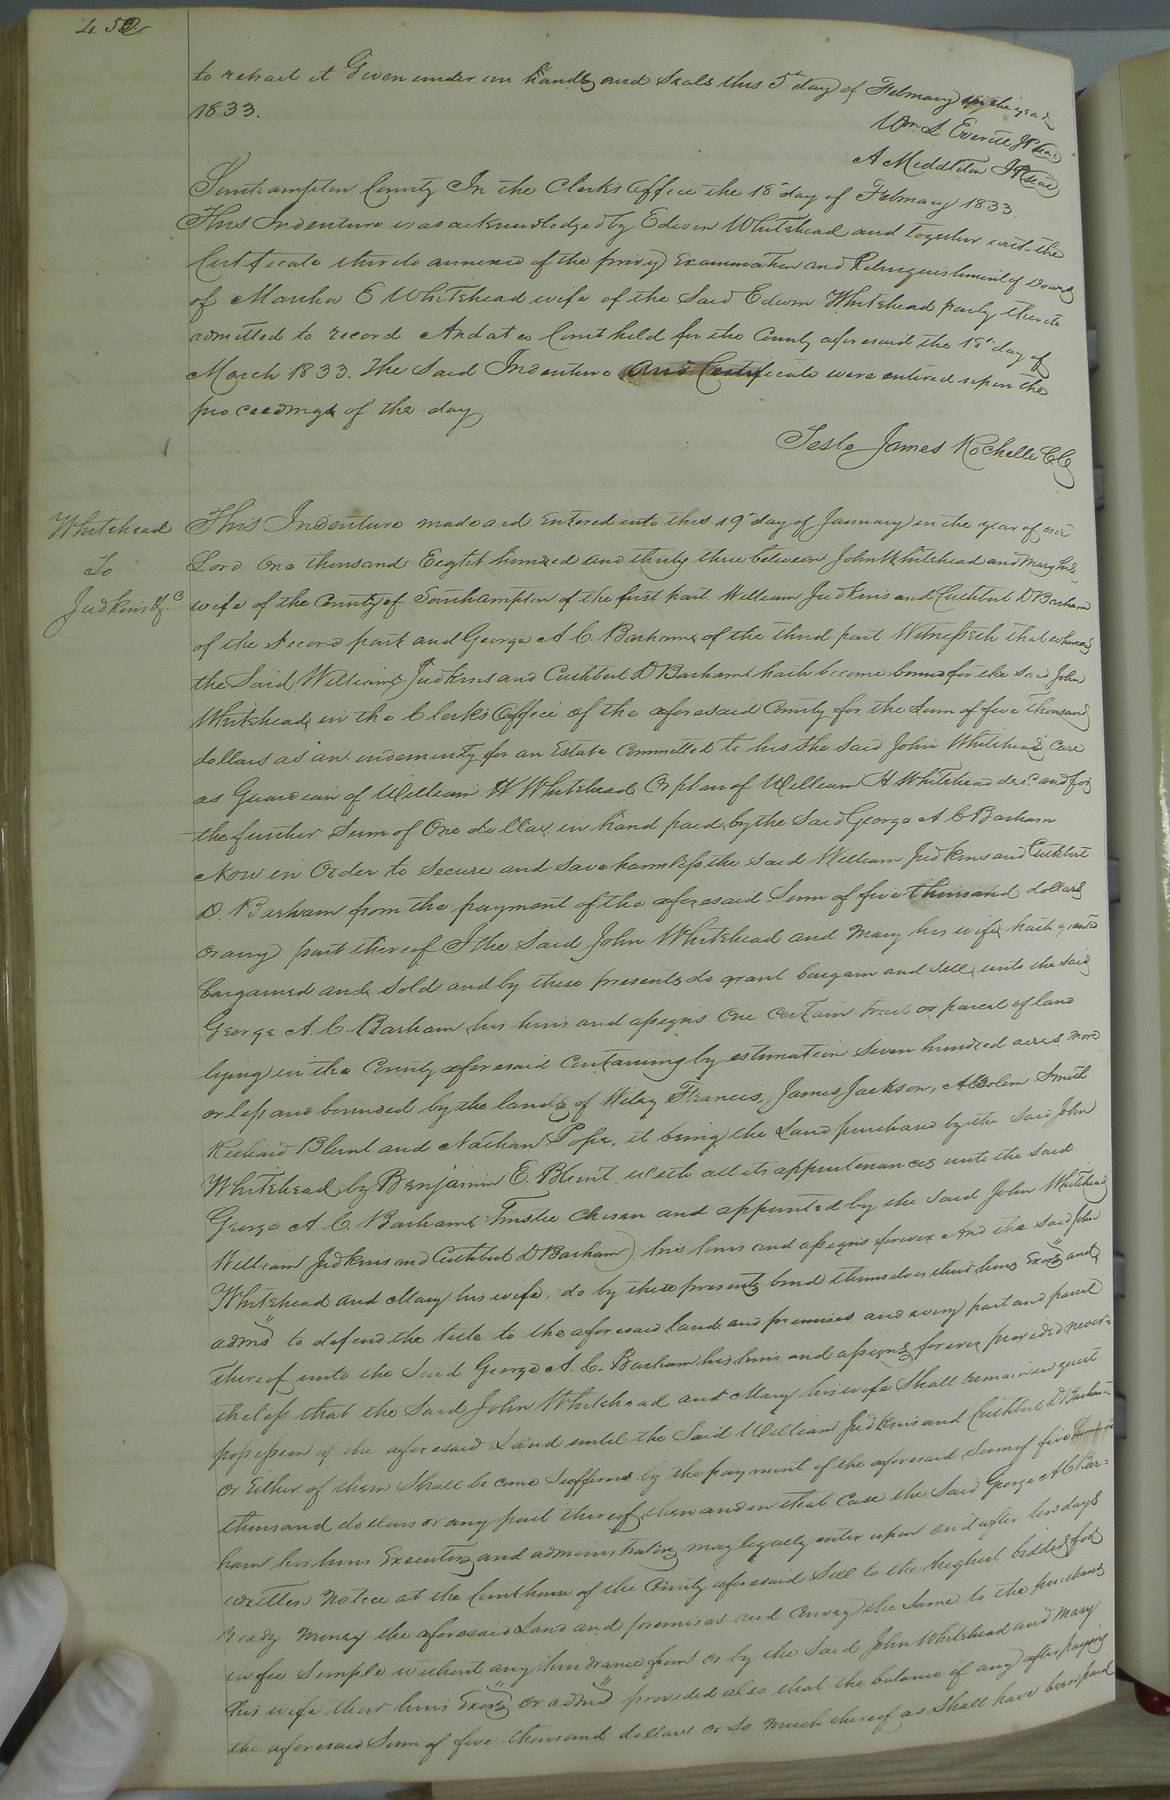 452
to retract it Given under our hands and Seals this 5th day of February in the year
1833.
Wm L Everitt JP Seal
A Middleton JP Seal
Southampton County In the Clerks office the 18th day of February 1833.
This Indenture was acknowledged by Edwin Whitehead and together with the
Certificate thereto annexed of the privy Examination and Relinquishment of dower
of Martha E Whitehead wife of the said Edwin Whitehead party thereto
admitted to record And at a Court held for the County aforesaid the 18th day of
March 1833. The Said Indenture and Certificate were entered upon the
proceedings of the day
Teste James Rochelle CC
Whitehead
To
Judkins &c
This Indenture made and entered into this 19th day of January in the year of our
Lord One thousand Eight hundred and thirty three between John Whitehead and Mary his
wife of the County of Southampton of the first part. William Judkins and Cuthbert D Barham
of the second part and George A. C. Barham of the third part Witnesseth that whereas
the Said William Judkins and Cuthbert D Barham hath become bound for the said John
Whitehead, in the Clerks Office of the aforesaid County for the Sum of five thousand
dollars as an indemnity for an Estate Committed to his the said John Whitehead care
as Guardian of William H Whitehead Orphan of William H Whitehead dec. and for
the further Sum of One dollar in hand paid, by the Said George A C Barham
Now in Order to secure and save harmless the Said William Judkins and Cuthbert
D. Barham from the payment of the aforesaid Sum of five thousand dollars
or any part thereof I the said John Whitehead and Mary his wife hath granted
bargained and Sold and by these presents do grant bargain and sell, unto the said
George A. C. Barham his heirs and assigns One certain tract or parcel of land
lying in the County aforesaid Containing by estimation Seven hundred acres more
or less and bounded by the lands of Wiley Francis, James Jackson, Absolem Smith
Richard Blunt and Nathan Pope, it being the Land purchased by the said John
Whitehead by Benjamin E. Blunt with all its appurtenances unto the said
George A. C. Barham (Trustee chosen and appointed by the said John Whitehead
William Judkins and Cuthbert D Barham) his heirs and assigns forever And the said John
Whitehead and Mary his wife, do by these presents bind themselves their heirs Exors and
admrs to defend the title to the aforesaid land and premises and every part and parcel
thereof unto the Said George A. C. Barham his heirs and assigns forever provided never=
theless that the Said John Whitehead and Mary his wife Shall remain in quiet
possession of the aforesaid Land until the Said William Judkins and Cuthbert D Barham
or Either of them Shall become sufferers by the payment of the aforesaid Sum of five
thousand dollars or any part thereof then and in that Case the Said George A C Bar=
ham his heirs Executors and administrators may legally enter upon and after ten days
written notice at the Courthouse of the County aforesaid Sell to the highest bidder for
ready money the aforesaid Land and premises and convey the Same to the purchaser
in fee Simple without any hindrance from or by the Said John Whitehead and Mary
his wife their heirs Exors or admrs provided also that the balance if any after paying
the aforesaid Sum of five thousand dollars or so much thereof as Shall have been paid